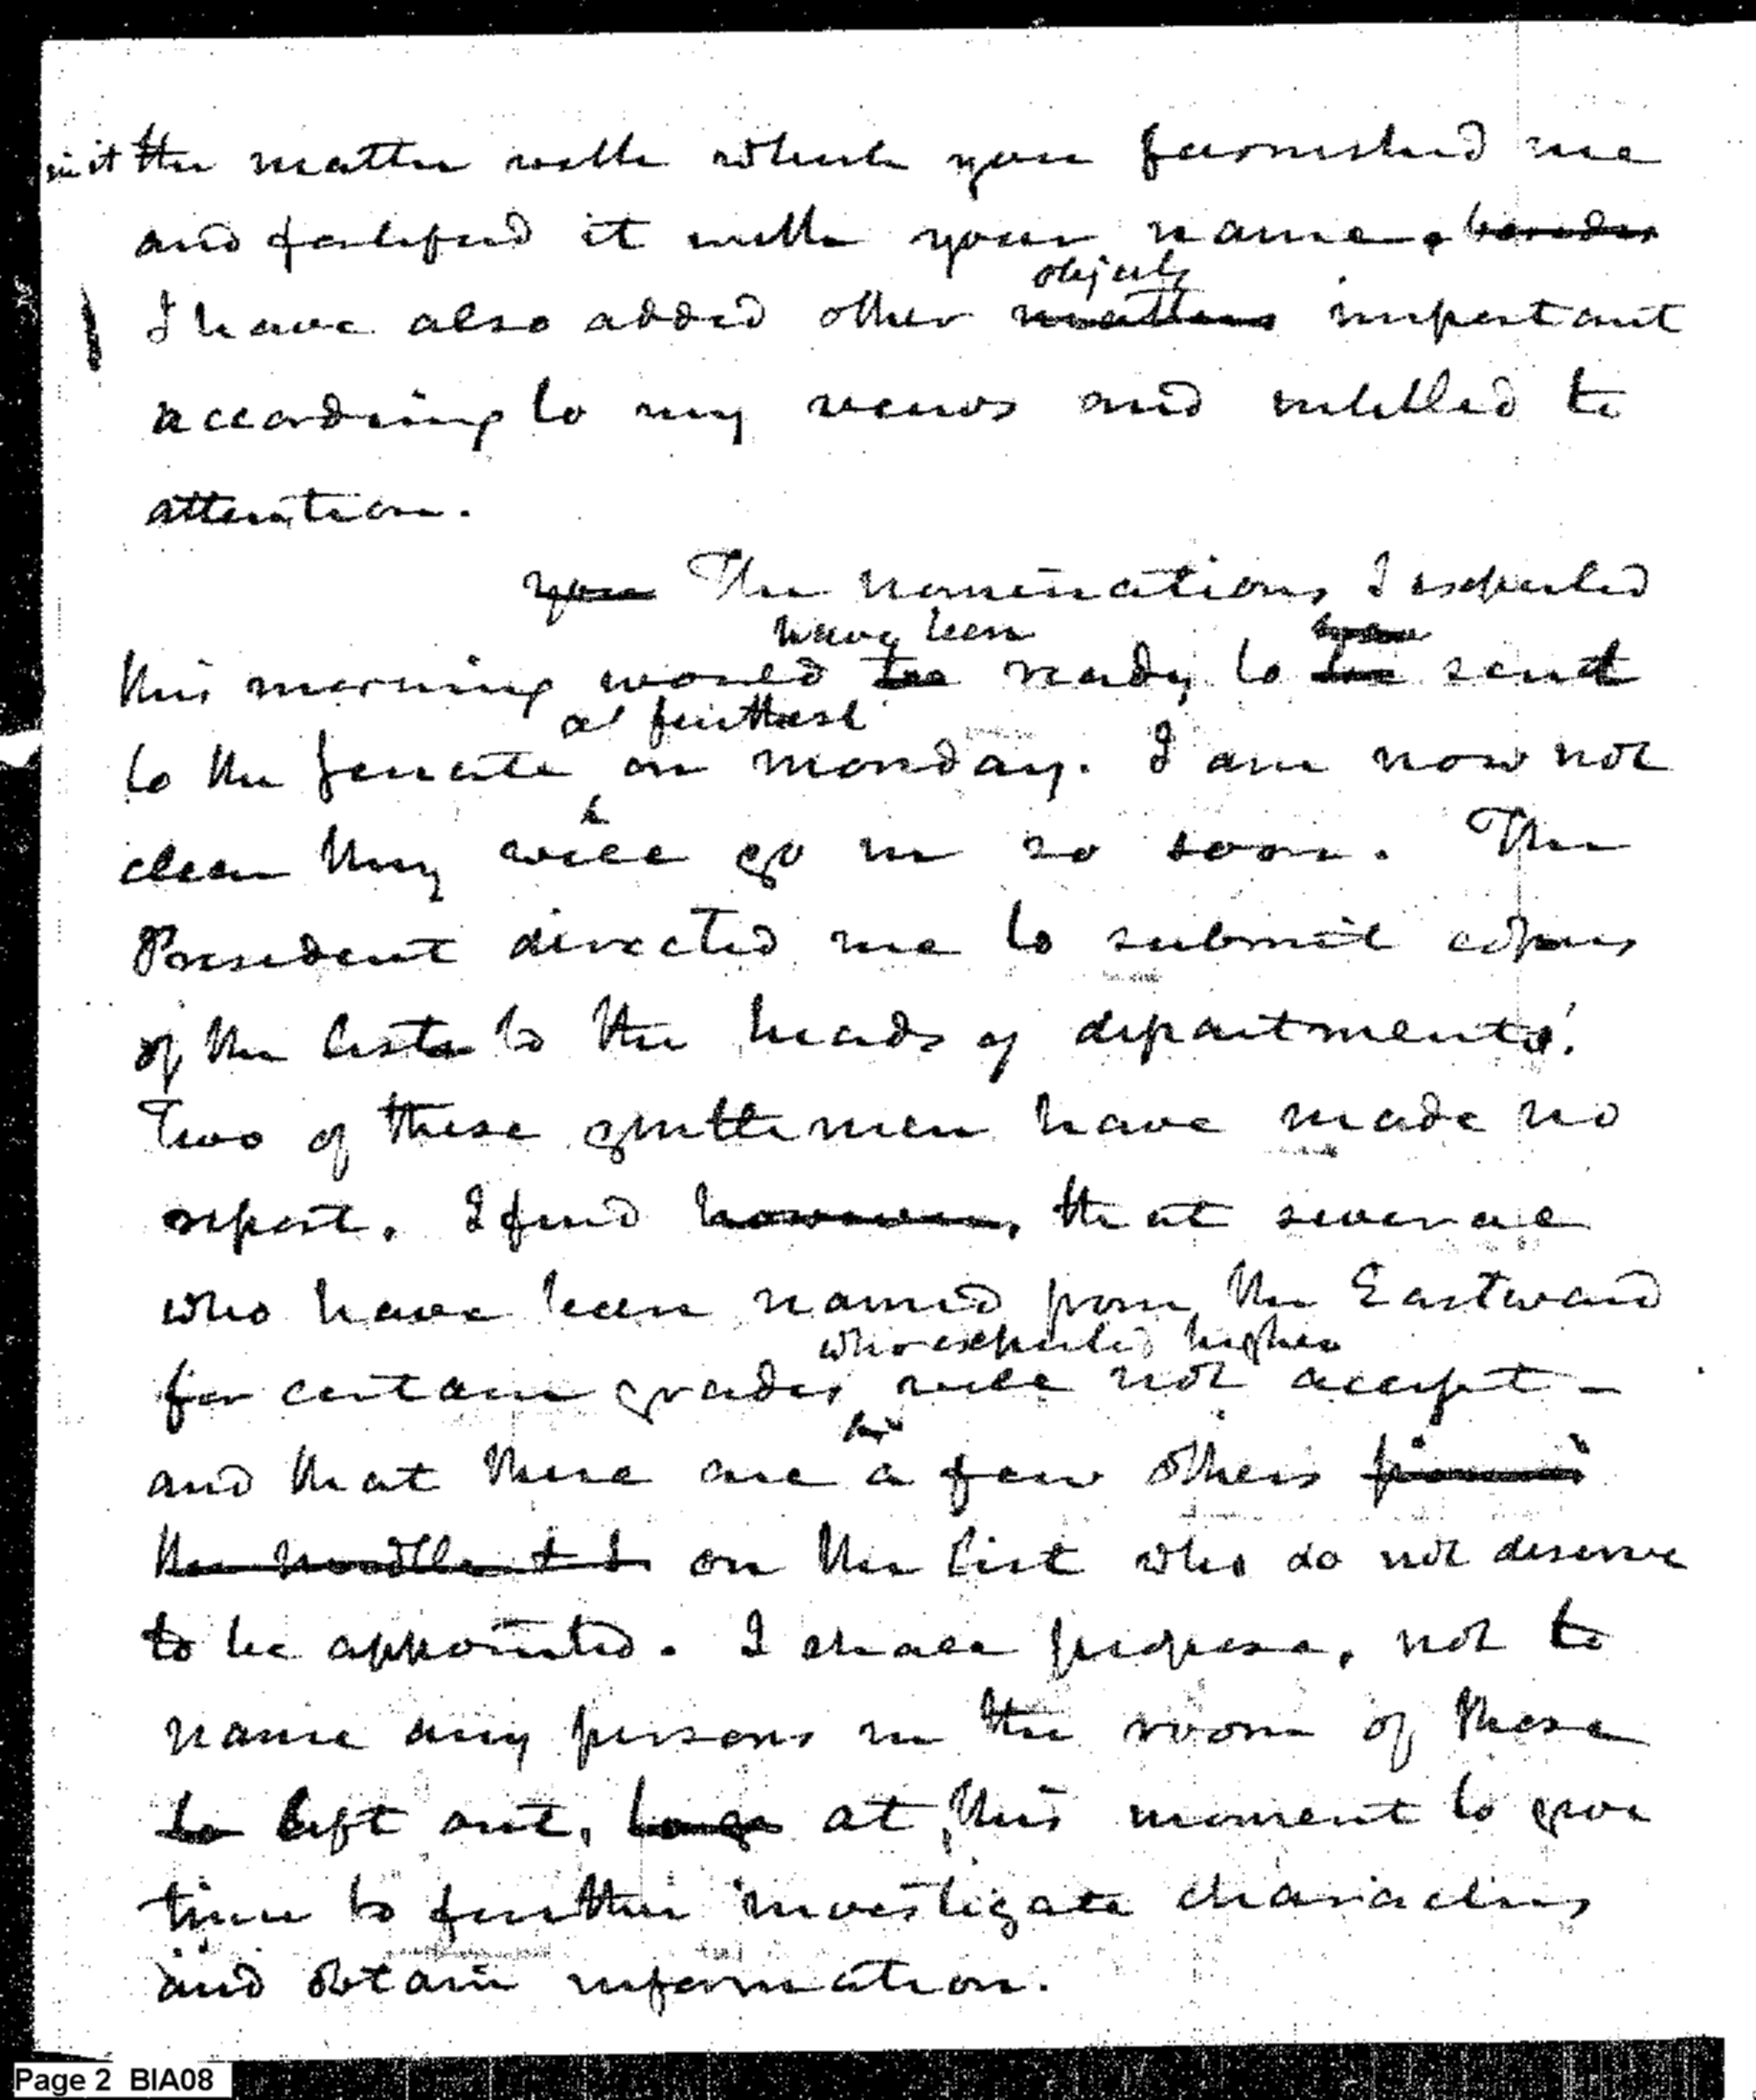 in it the matter with which you furnished me
and fortifyed it with your name. besides
objects
I have also added other matters important
according to my views and intitled to
attention.
your The nominations I expected
have been
this morning would be ready to be sent
at furthest
to the Senate on monday. I am now not
clear they will go in so soon. The
President directed me to submit copies
of the lists to the heads of departments.
Two of these gentlemen have made no
report. I find however, that several
who have been named from the Eastward
who expected higher
for certain grades will not accept -
and that there are a few others from
the on the list who do not deserve
to be appointed. I shall propose, not to
name any persons in the room of those
to left out, at this moment to give
time to further investigate characters
and obtain information.
Page 2 BIA08